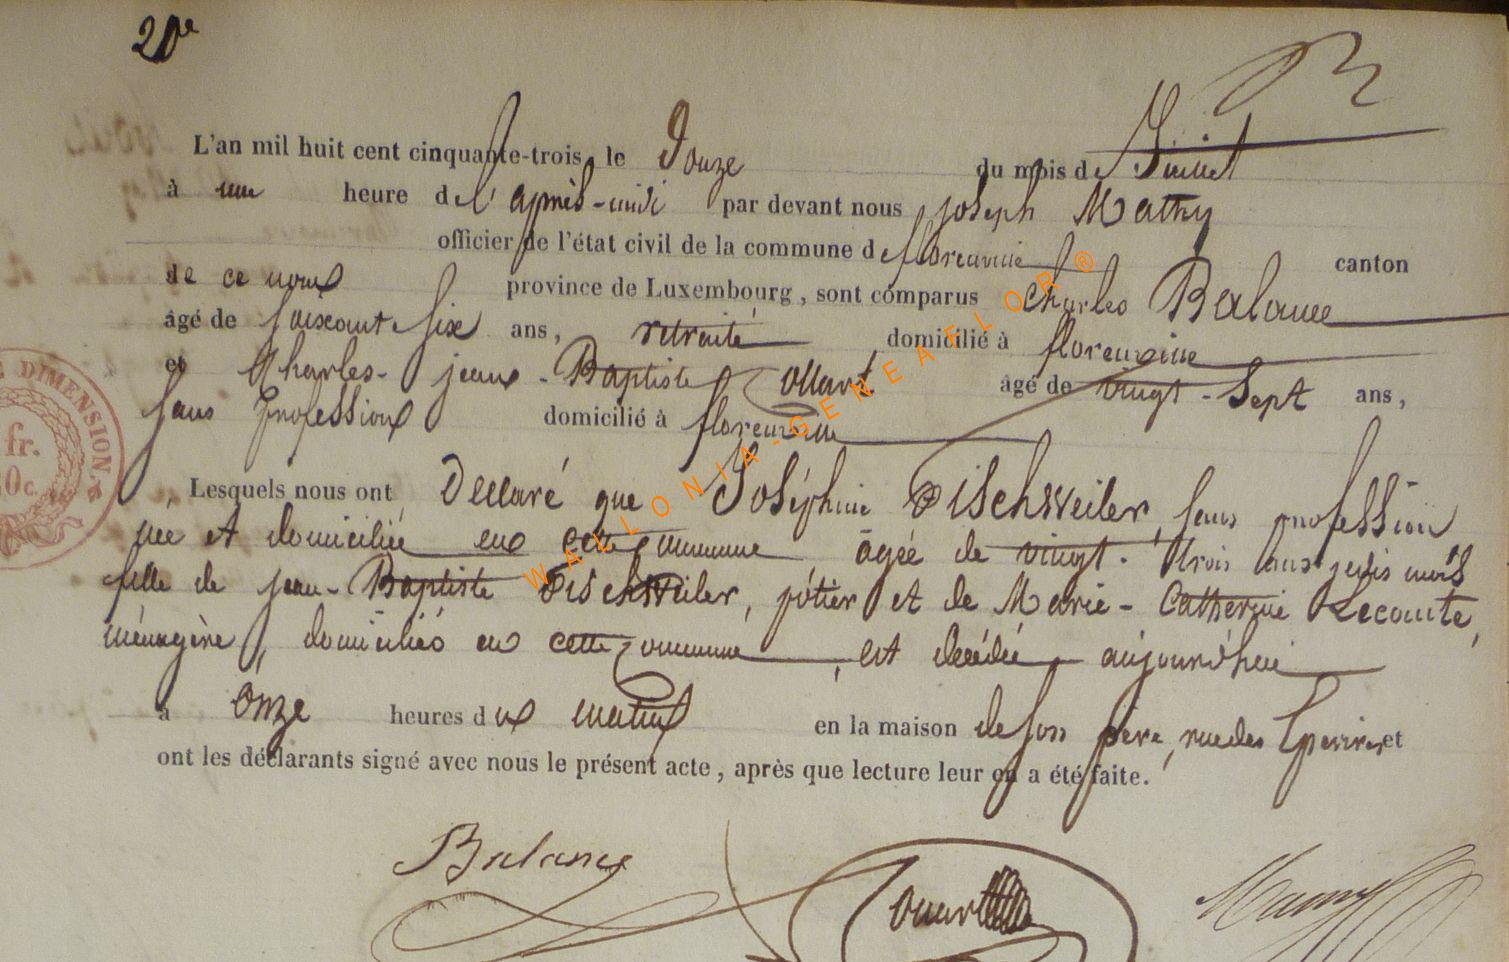 20e
L'an mil huit cent cinquante-trois, le Douze du mois de Juillet
à une heure de l'après-midi par devant nous joseph Mathy
officier de l'état civil de la commune de florenville canton
de ce nom province de Luxembourg, sont comparus Charles Balance
âgé de soixante six ans, retraité domicilié à florenville
et Charles-jean-Baptiste ollart âgé de vingt-sept ans,
sans profession domicilié à florenville
Lesquels nous ont Déclaré que Joséphine Dischweiler, sans profession
née et domiciliée en cette commune âgée de vingt-trois ans seize mois
fille de jean-Baptiste Dischweiler, pôtier et de Marie-Catherine Lecomte,
ménagère, domiciliés en cette commune, est décédée aujourd'hui
à onze heures du matin en la maison de son père, rue des Eperires et
ont les déclarants signé avec nous le présent acte, après que lecture leur en a été faite.
Balance ollart Mathy
DIMENSION.
fr.
0c.
WALLONIA-GENEAFLOR®